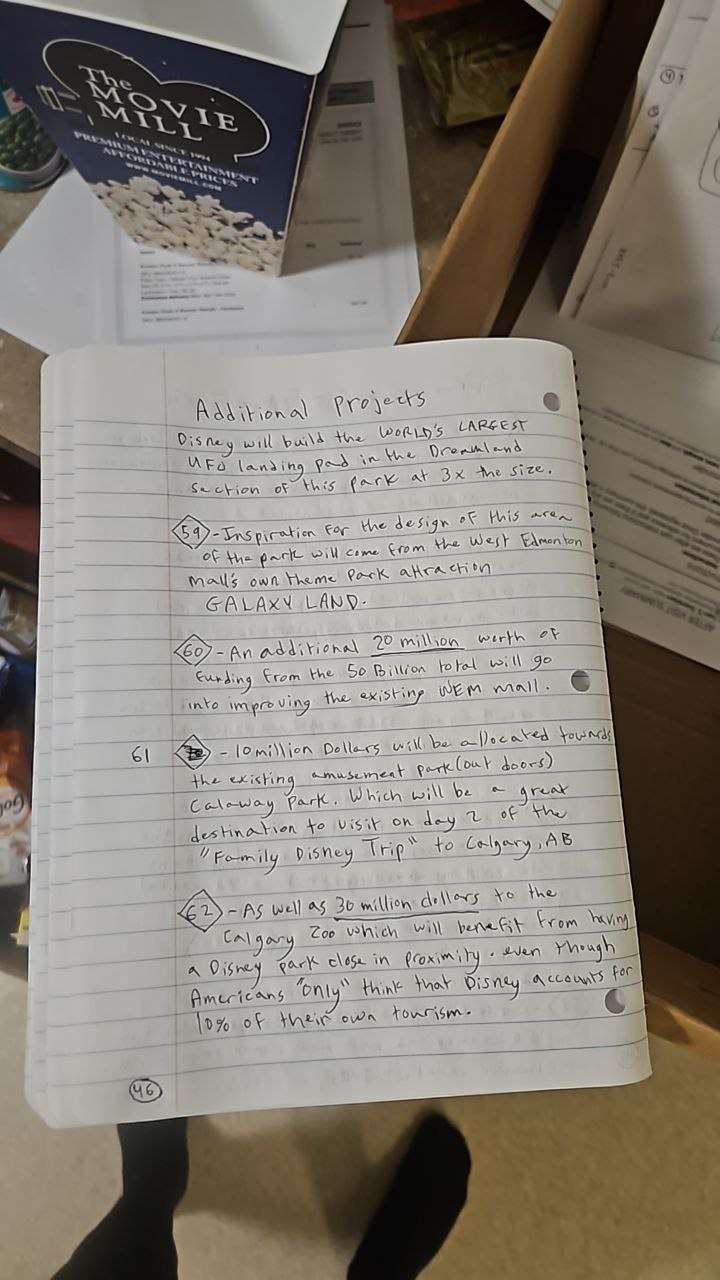 The
MOVIE
MILL
LOCAL SINCE 1994
PREMIUM ENTERTAINMENT
AFFORDABLE PRICES
WWW.MOVIEMILL.COM
Additional Projects
Disney will build the WORLD'S LARGEST
UFO landing pad in the Dreamland
section of this park at 3x the size.
59 - Inspiration for the design of this area
of the park will come from the West Edmonton
mall's own theme park attraction
GALAXY LAND.
60 - An additional 20 million worth of
funding from the 50 Billion total will go
into improving the existing WEM mall.
61 - 10 million Dollars will be allocated towards
the existing amusement park (out doors)
Calaway Park. Which will be a great
destination to visit on day 2 of the
"Family Disney Trip" to Calgary, AB
62 - As well as 30 million dollars to the
Calgary Zoo which will benefit from having
a Disney park close in proximity. even though
Americans "only" think that Disney accounts for
10% of their own tourism.
46